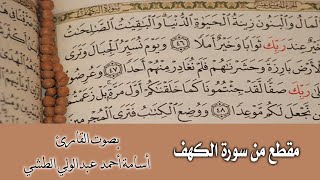 ٱلْمَالُ وَٱلْبَنُونَ زِينَةُ ٱلْحَيَوٰةِ ٱلدُّنْيَا وَٱلْبَٰقِيَٰتُ ٱلصَّٰلِحَٰتُ
خَيْرٌ عِندَ رَبِّكَ ثَوَابًا وَخَيْرٌ أَمَلًا ٤٦ وَيَوْمَ نُسَيِّرُ ٱلْجِبَالَ وَتَرَى
ٱلْأَرْضَ بَارِزَةً وَحَشَرْنَٰهُمْ فَلَمْ نُغَادِرْ مِنْهُمْ أَحَدًا ٤٧ وَعُرِضُوا۟
رَبِّكَ صَفًّا لَّقَدْ جِئْتُمُونَا كَمَا خَلَقْنَٰكُمْ أَوَّلَ مَرَّةٍۭ بَلْ زَعَمْتُمْ
نَّجْعَلَ لَكُم مَّوْعِدًا ٤٨ وَوُضِعَ ٱلْكِتَٰبُ فَتَرَى ٱلْمُجْرِمِينَ
مقطع من سورة الكهف
بصوت القارئ
أسامة أحمد عبدالولي الطشي